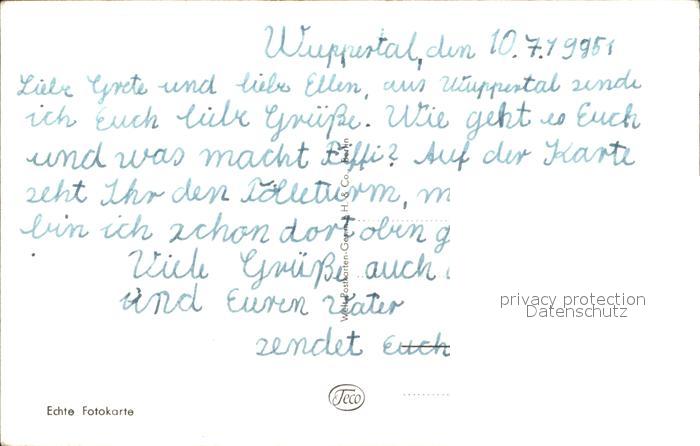 Wuppertal, den 10.7.1951
Liebe Grete und liebe Ellen, aus Wuppertal sende
ich Euch liebe Grüße. Wie geht es Euch
und was macht Fiffi? Auf der Karte
seht Ihr den Tölleturm, m
bin ich schon dort oben g
Viele Grüße auch
und Euren Vater
sendet Euch
Welt-Postkarten-Ges. m.b.H. & Co., Berlin
privacy protection
Datenschutz
Teco
Echte Fotokarte